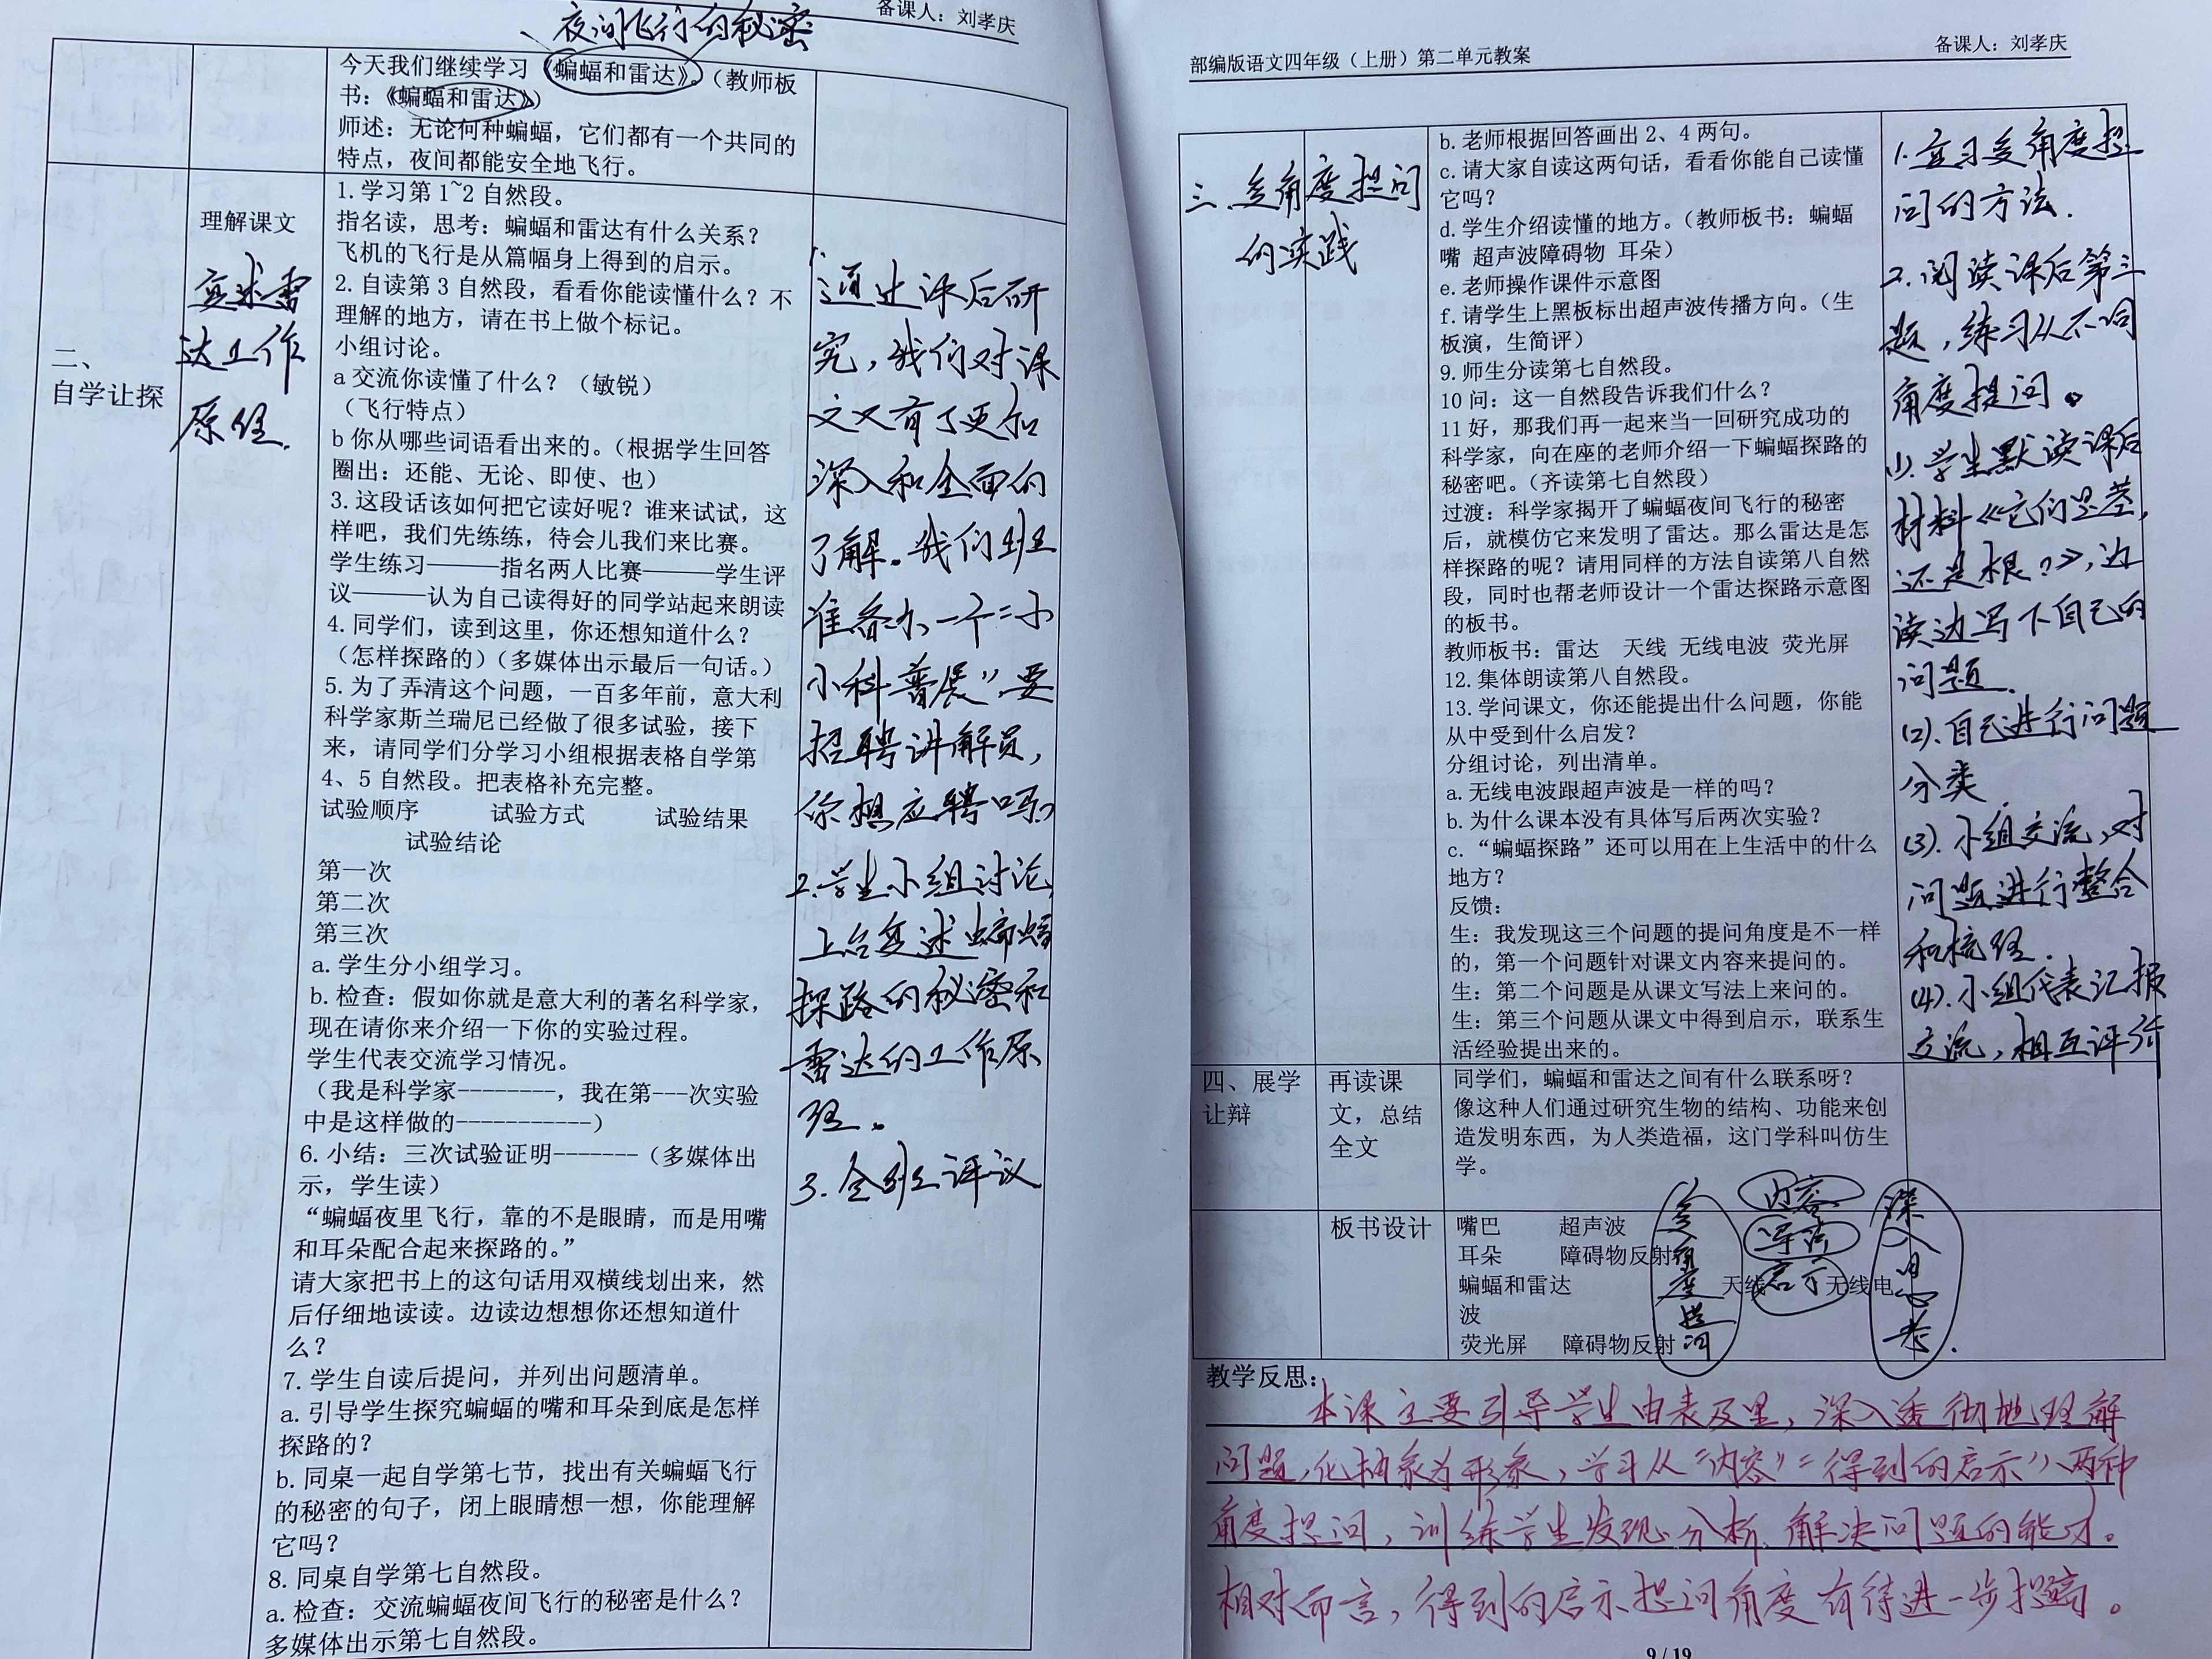 夜间飞行的秘密
备课人：刘孝庆
今天我们继续学习《蝙蝠和雷达》。（教师板
书：《蝙蝠和雷达》）
师述：无论何种蝙蝠，它们都有一个共同的
特点，夜间都能安全地飞行。
二、
自学让探
理解课文
复述雷
达工作
原理.
1.学习第1~2自然段。
指名读，思考：蝙蝠和雷达有什么关系？
飞机的飞行是从篇幅身上得到的启示。
2.自读第3自然段，看看你能读懂什么？不
理解的地方，请在书上做个标记。
小组讨论。
a交流你读懂了什么？（敏锐）
（飞行特点）
b你从哪些词语看出来的。（根据学生回答
圈出：还能、无论、即使、也）
3.这段话该如何把它读好呢？谁来试试，这
样吧，我们先练练，待会儿我们来比赛。
学生练习———指名两人比赛———学生评
议———认为自己读得好的同学站起来朗读
4.同学们，读到这里，你还想知道什么？
（怎样探路的）（多媒体出示最后一句话。）
5.为了弄清这个问题，一百多年前，意大利
科学家斯兰瑞尼已经做了很多试验，接下
来，请同学们分学习小组根据表格自学第
4、5自然段。把表格补充完整。
试验顺序 试验方式 试验结果
试验结论
第一次
第二次
第三次
a.学生分小组学习。
b.检查：假如你就是意大利的著名科学家，
现在请你来介绍一下你的实验过程。
学生代表交流学习情况。
（我是科学家---------，我在第---次实验
中是这样做的------------）
6.小结：三次试验证明-------（多媒体出
示，学生读）
“蝙蝠夜里飞行，靠的不是眼睛，而是用嘴
和耳朵配合起来探路的。”
请大家把书上的这句话用双横线划出来，然
后仔细地读读。边读边想想你还想知道什
么？
7.学生自读后提问，并列出问题清单。
a.引导学生探究蝙蝠的嘴和耳朵到底是怎样
探路的？
b.同桌一起自学第七节，找出有关蝙蝠飞行
的秘密的句子，闭上眼睛想一想，你能理解
它吗？
8.同桌自学第七自然段。
a.检查：交流蝙蝠夜间飞行的秘密是什么？
多媒体出示第七自然段。
1.通过课后研
究，我们对课
文又有了更加
深入和全面的
了解。我们班
准备办一个“小
小科普展”，要
招聘讲解员，
你想应聘吗？
2.学生小组讨论，
上台复述蝙蝠
探路的秘密和
雷达的工作原
理。
3.全班评议
部编版语文四年级（上册）第二单元教案
备课人：刘孝庆
三.多角度提问
的实践
b.老师根据回答画出2、4两句。
c.请大家自读这两句话，看看你能自己读懂
它吗？
d.学生介绍读懂的地方。（教师板书：蝙蝠
嘴 超声波障碍物 耳朵）
e.老师操作课件示意图
f.请学生上黑板标出超声波传播方向。（生
板演，生简评）
9.师生分读第七自然段。
10问：这一自然段告诉我们什么？
11好，那我们再一起来当一回研究成功的
科学家，向在座的老师介绍一下蝙蝠探路的
秘密吧。（齐读第七自然段）
过渡：科学家揭开了蝙蝠夜间飞行的秘密
后，就模仿它来发明了雷达。那么雷达是怎
样探路的呢？请用同样的方法自读第八自然
段，同时也帮老师设计一个雷达探路示意图
的板书。
教师板书：雷达 天线 无线电波 荧光屏
12.集体朗读第八自然段。
13.学问课文，你还能提出什么问题，你能
从中受到什么启发？
分组讨论，列出清单。
a.无线电波跟超声波是一样的吗？
b.为什么课本没有具体写后两次实验？
c.“蝙蝠探路”还可以用在上生活中的什么
地方？
反馈：
生：我发现这三个问题的提问角度是不一样
的，第一个问题针对课文内容来提问的。
生：第二个问题是从课文写法上来问的。
生：第三个问题从课文中得到启示，联系生
活经验提出来的。
1.复习多角度提
问的方法.
2.阅读课后第三
题，练习从不同
角度提问。
(1).学生默读课后
材料《它们是茎，
还是根？》，边
读边写下自己的
问题.
(2).自己进行问题
分类.
(3).小组交流，对
问题进行整合
和梳理.
(4).小组代表汇报
交流，相互评价
四、展学
让辩
再读课
文，总结
全文
同学们，蝙蝠和雷达之间有什么联系呀？
像这种人们通过研究生物的结构、功能来创
造发明东西，为人类造福，这门学科叫仿生
学。
板书设计
嘴巴 超声波
耳朵 障碍物反射
蝙蝠和雷达 天线 无线电
波
荧光屏 障碍物反射
多角度提问
内容
写法
启示
深入思考.
教学反思：
本课主要引导学生由表及里，深入透彻地理解
问题，化抽象为形象，学习从“内容”“得到的启示”两种
角度提问，训练学生发现、分析、解决问题的能力。
相对而言，得到的启示提问角度有待进一步提高。
9/19